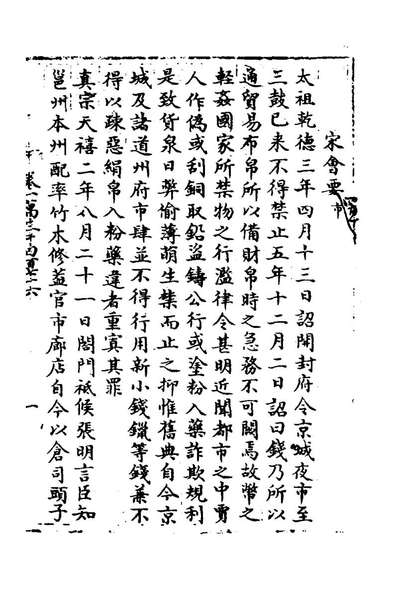 宋會要
市
太祖乾德三年四月十三日詔開封府令京城夜市至
三鼓已來不得禁止五年十二月二日詔曰錢乃所以
通貿易布帛所以備財帛時之急務不可闕焉故幣之
輕姦國家所禁物之行濫律令甚明近聞都市之中賈
人作偽或刮銅取鉛盜鑄公行或塗粉入藥詐欺規利
是致貨泉日弊偷薄萌生禁而止之抑惟舊典自今京
城及諸道州府市肆並不得行用新小錢鑞等錢兼不
得以疎惡絹帛入粉藥違者重寘其罪
真宗天禧二年八月二十一日閤門祇候張明言臣知
邕州本州配率竹木修葢官市廊店自今以倉司頭子
卷一萬三千四百
一